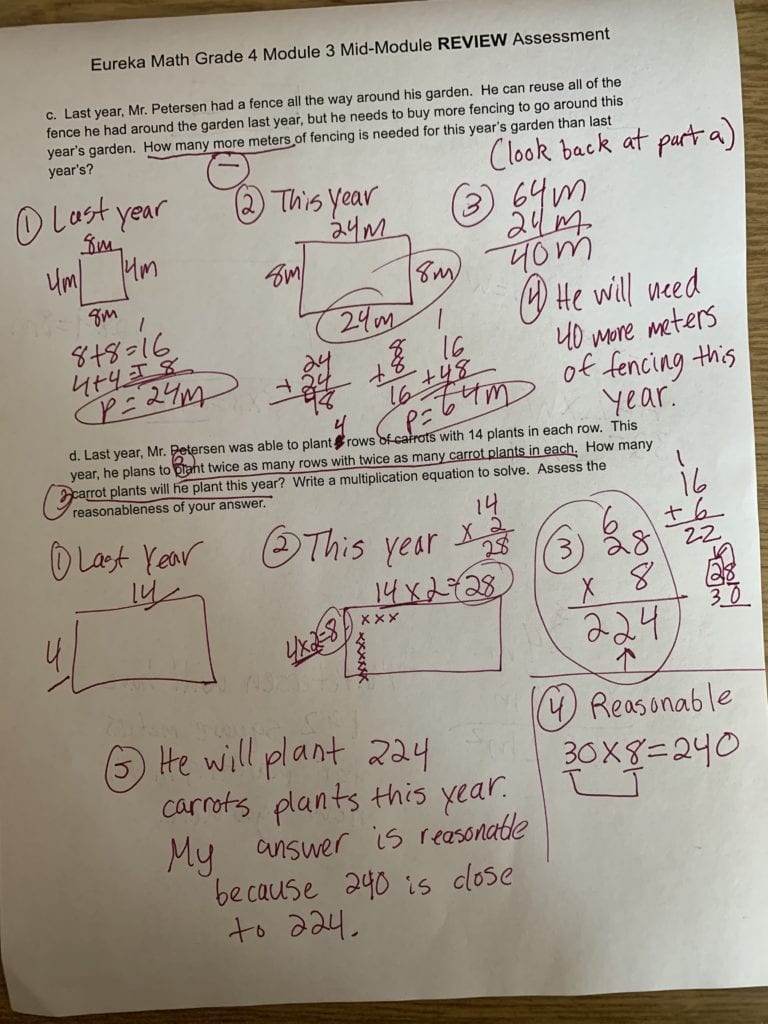 Eureka Math Grade 4 Module 3 Mid-Module REVIEW Assessment
c. Last year, Mr. Petersen had a fence all the way around his garden. He can reuse all of the
fence he had around the garden last year, but he needs to buy more fencing to go around this
year's garden. How many more meters of fencing is needed for this year's garden than last
year's?
−
(look back at part a)
① Last year
8m
4m 4m
8m
8+8=16
4+4=8
P=24m
② This year
24m
8m 8m
24m
24
+ 24
48
8
+ 8
16
1
16
+48
P=64m
③ 64m
24m
40m
④ He will need
40 more meters
of fencing this
year.
d. Last year, Mr. Petersen was able to plant 4 rows of carrots with 14 plants in each row. This
year, he plans to plant twice as many rows with twice as many carrot plants in each. How many
carrot plants will he plant this year? Write a multiplication equation to solve. Assess the
reasonableness of your answer.
2
2
① Last Year
14
4
② This year
14
x 2
28
14x2=28
4x2=8
x x x
x
x
x
x
x
x
③ 6
28
x 8
224
1
16
+ 6
22
28
30
④ Reasonable
30x8=240
⑤ He will plant 224
carrots plants this year.
My answer is reasonable
because 240 is close
to 224.